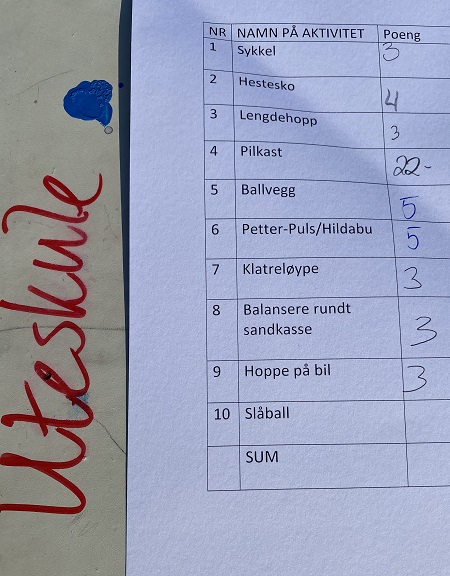 Uteskule
NR NAMN PÅ AKTIVITET Poeng
1 Sykkel 3
2 Hestesko 4
3 Lengdehopp 3
4 Pilkast 22-
5 Ballvegg 5
6 Petter-Puls/Hildabu 5
7 Klatreløype 3
8 Balansere rundt
sandkasse 3
9 Hoppe på bil 3
10 Slåball
SUM